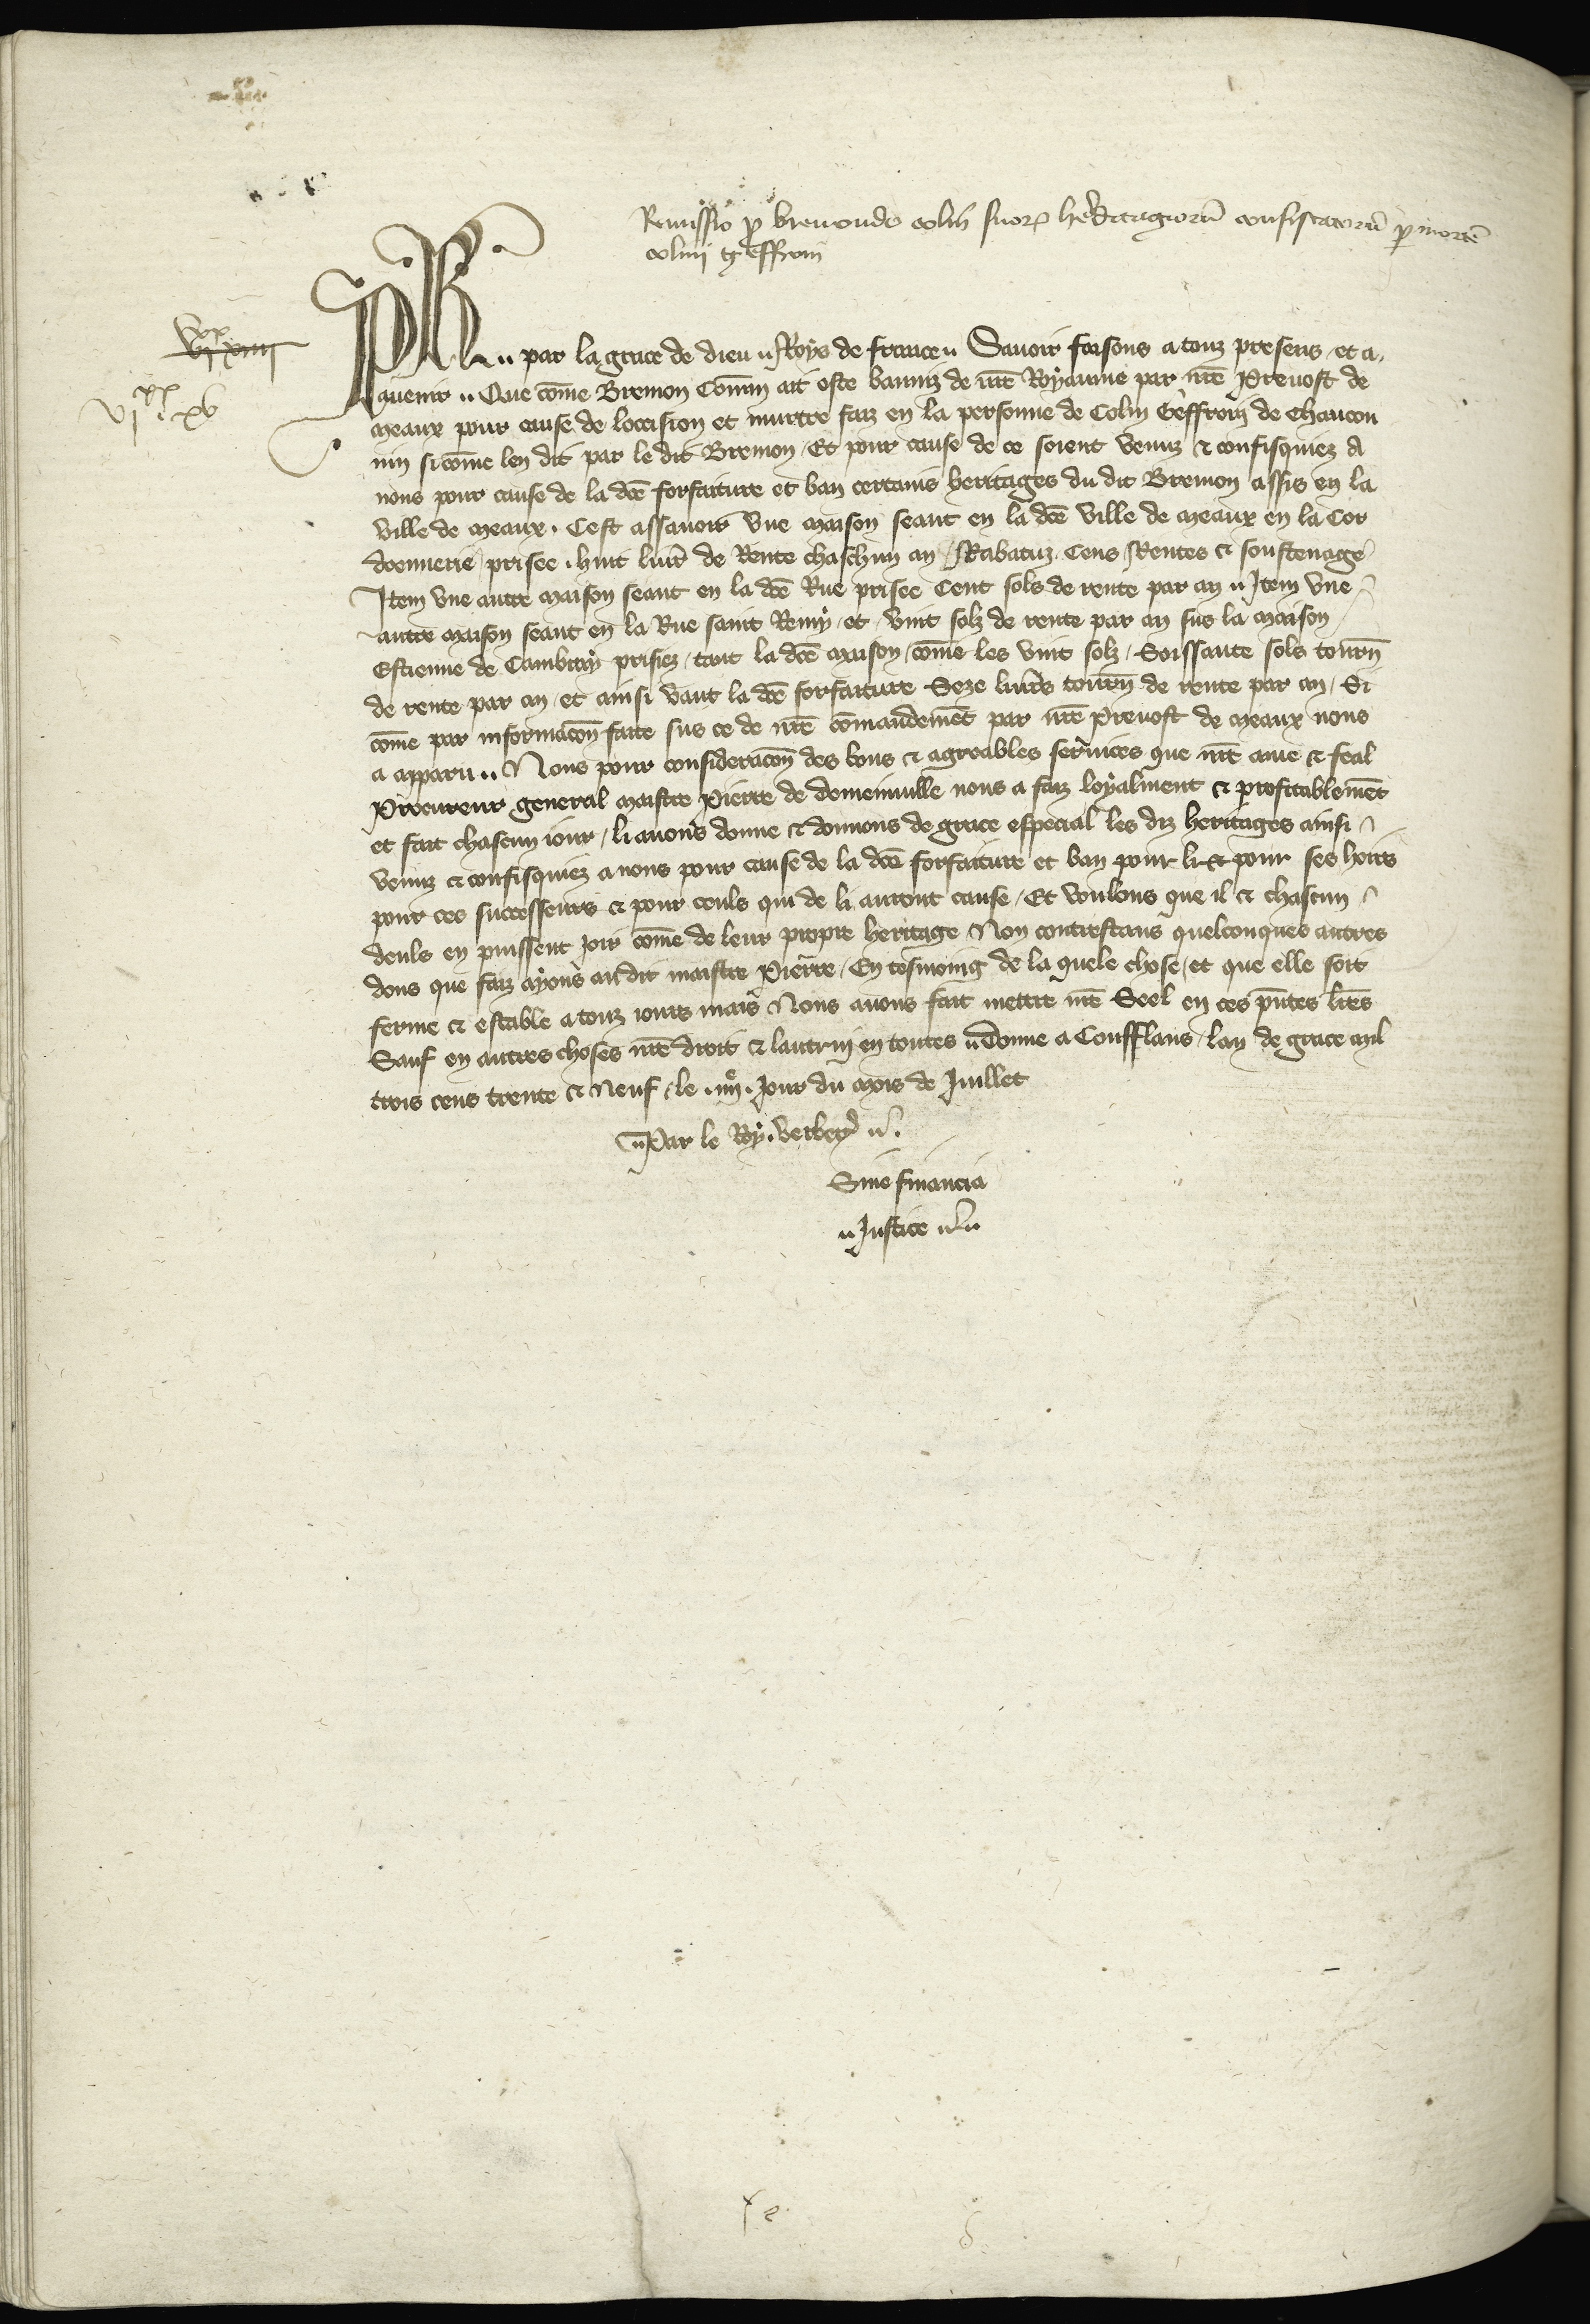 Remissio p bremondo colin suor heditagiorū confiscatorū p mortē
colini geffroni
vi xx xiiii
vi xx xv
Ph par la grace de dieu Roys de france Sauoir faisons a touz presens et a
auenir Que cōme Bremon Conin ait este banniz de nrē Royaume par nrē Preuost de
Meaux pour cause de loccision et murtre faiz en la personne de Colin Geffroy de Chaucon
nin si cōme len dit par le dit Bremon Et pour cause de ce soient venuz & confisquiez a
nous pour cause de la dcē forfaiture et ban certains heritages du dit Bremon assis en la
ville de Meaux . Cest assauoir vne maison seant en la dcē ville de Meaux en la Cor
doennerie prisee . huit liur de Rente chaschun an Rabatuz Cens Rentes & soustenage
Item vne autre maison seant en la dcē Rue prisee Cent sols de rente par an Item vne
autre maison seant en la Rue saint Remy et vint solz de rente par an sus la maison
Estienne de Cambray prisiez tant la dcē maison cōme les vint solz Soissante sols tourn
de rente par an et ainsi vaut la dcē forfaiture Seze liurēs tourn de rente par an Si
cōme par informacōn faite sus ce de nrē cōmandemēt par nrē Preuost de Meaux nous
a apparu Nous pour consideracōn des bons & agreables seruices que nrē ame & feal
Procureur general maistre Pierre de demeinuille nous a faiz loyalment & profitablemēt
et fait chascun iour li auons donne & donnons de grace especial les diz heritages ainsi
venuz & confisquiez a nous pour cause de la dcē forfaiture et ban pour li & pour ses hoirs
pour ces successeurs & pour ceuls qui de li auront cause Et voulons que il & chascun
deuls en puissent joir cōme de leur propre heritage Non contrestans quelconques autres
dons que faiz ayons au dit maistre Pierre En tesmoing de la quele chose et que elle soit
ferme & estable a touz iours mais Nous auons fait mettre nrē Seel en ces pn̄tes lrēs
Sauf en autres choses nrē droit & lautruy en toutes Donne a Confflans lan de grace mil
trois cens trente & Neuf le iiiie Jour du mois de Juillet
Par le Roy . verber
Sine financia
Justice